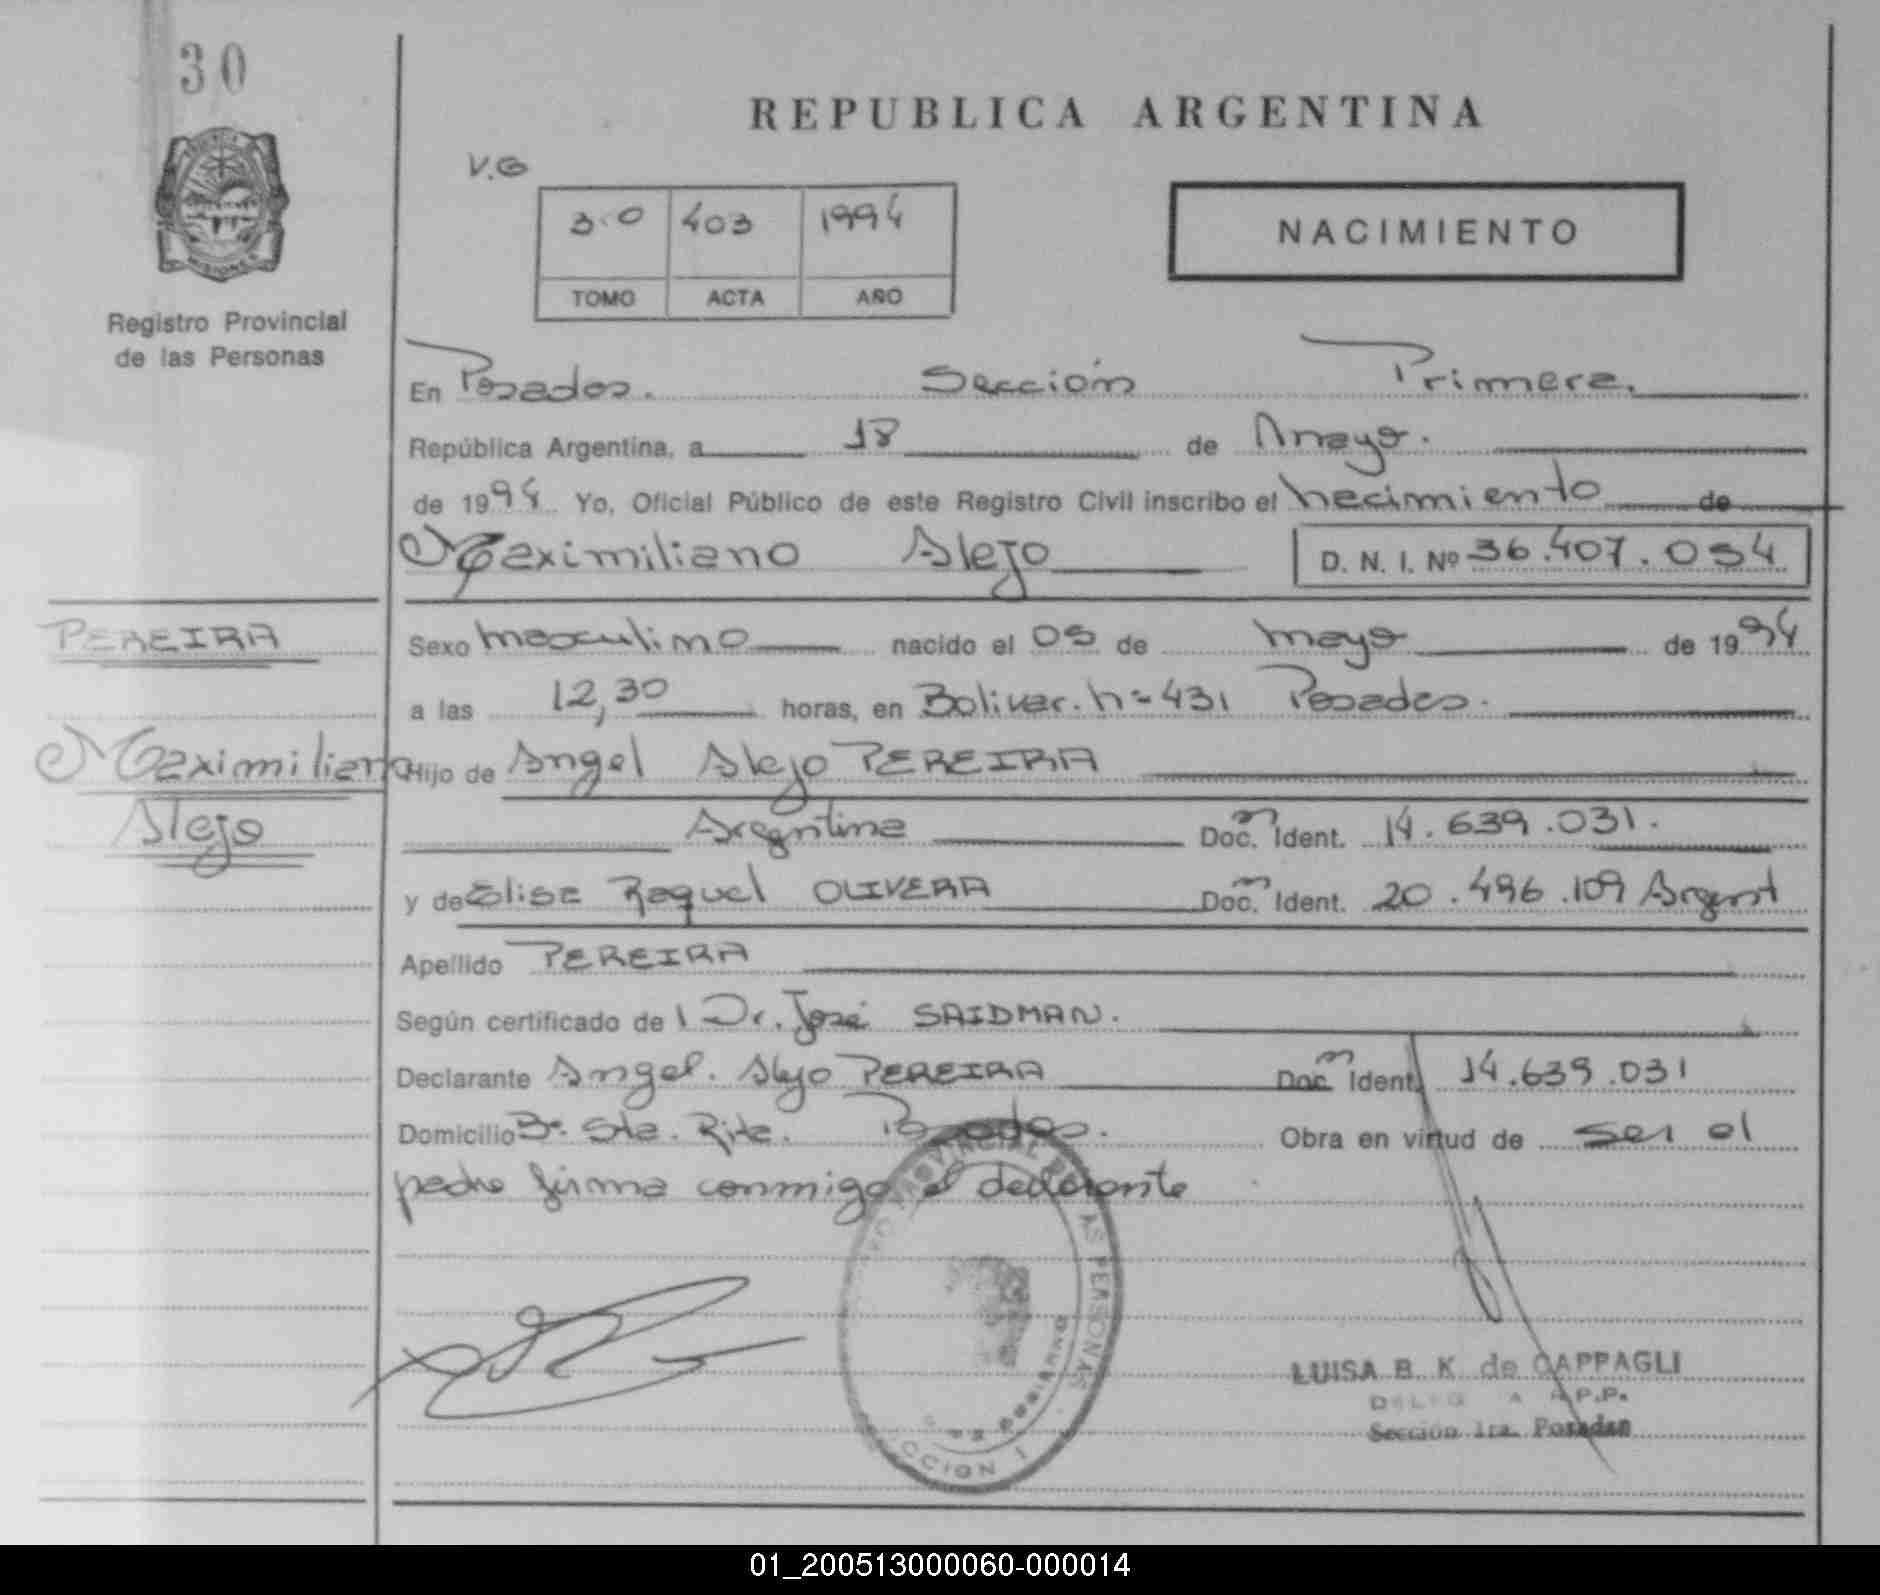 30
REPUBLICA ARGENTINA
V.G
3.0 403 1994
TOMO ACTA AÑO
NACIMIENTO
MISIONES
Registro Provincial
de las Personas
En Posadas. Sección Primera.
República Argentina, a 18 de Mayo.
de 1994 Yo, Oficial Público de este Registro Civil inscribo el nacimiento de
Maximiliano Alejo D. N. I. Nº 36.407.054
PEREIRA
Sexo masculino nacido el 05 de mayo de 1994
a las 12,30 horas, en Bolivar. nº 431 Posadas.
Maximiliano
Hijo de Angel Alejo PEREIRA
Alejo
Argentina Doc. Ident. 14.639.031.
y de Elisa Raquel OLIVERA Doc. Ident. 20.496.109 Argent
Apellido PEREIRA
Según certificado de l Dr. José SAIDMAN.
Declarante Angel. Alejo PEREIRA Doc. Ident. 14.639.031
Domicilio Bº. Sta. Rita. Posadas. Obra en virtud de ser el
padre firma conmigo el declarante
PROVINCIAL DE LAS PERSONAS
SECCION 1
LUISA B. K. de CAPPAGLI
R.P.P.
Sección 1ra. Posadas
01_200513000060-000014